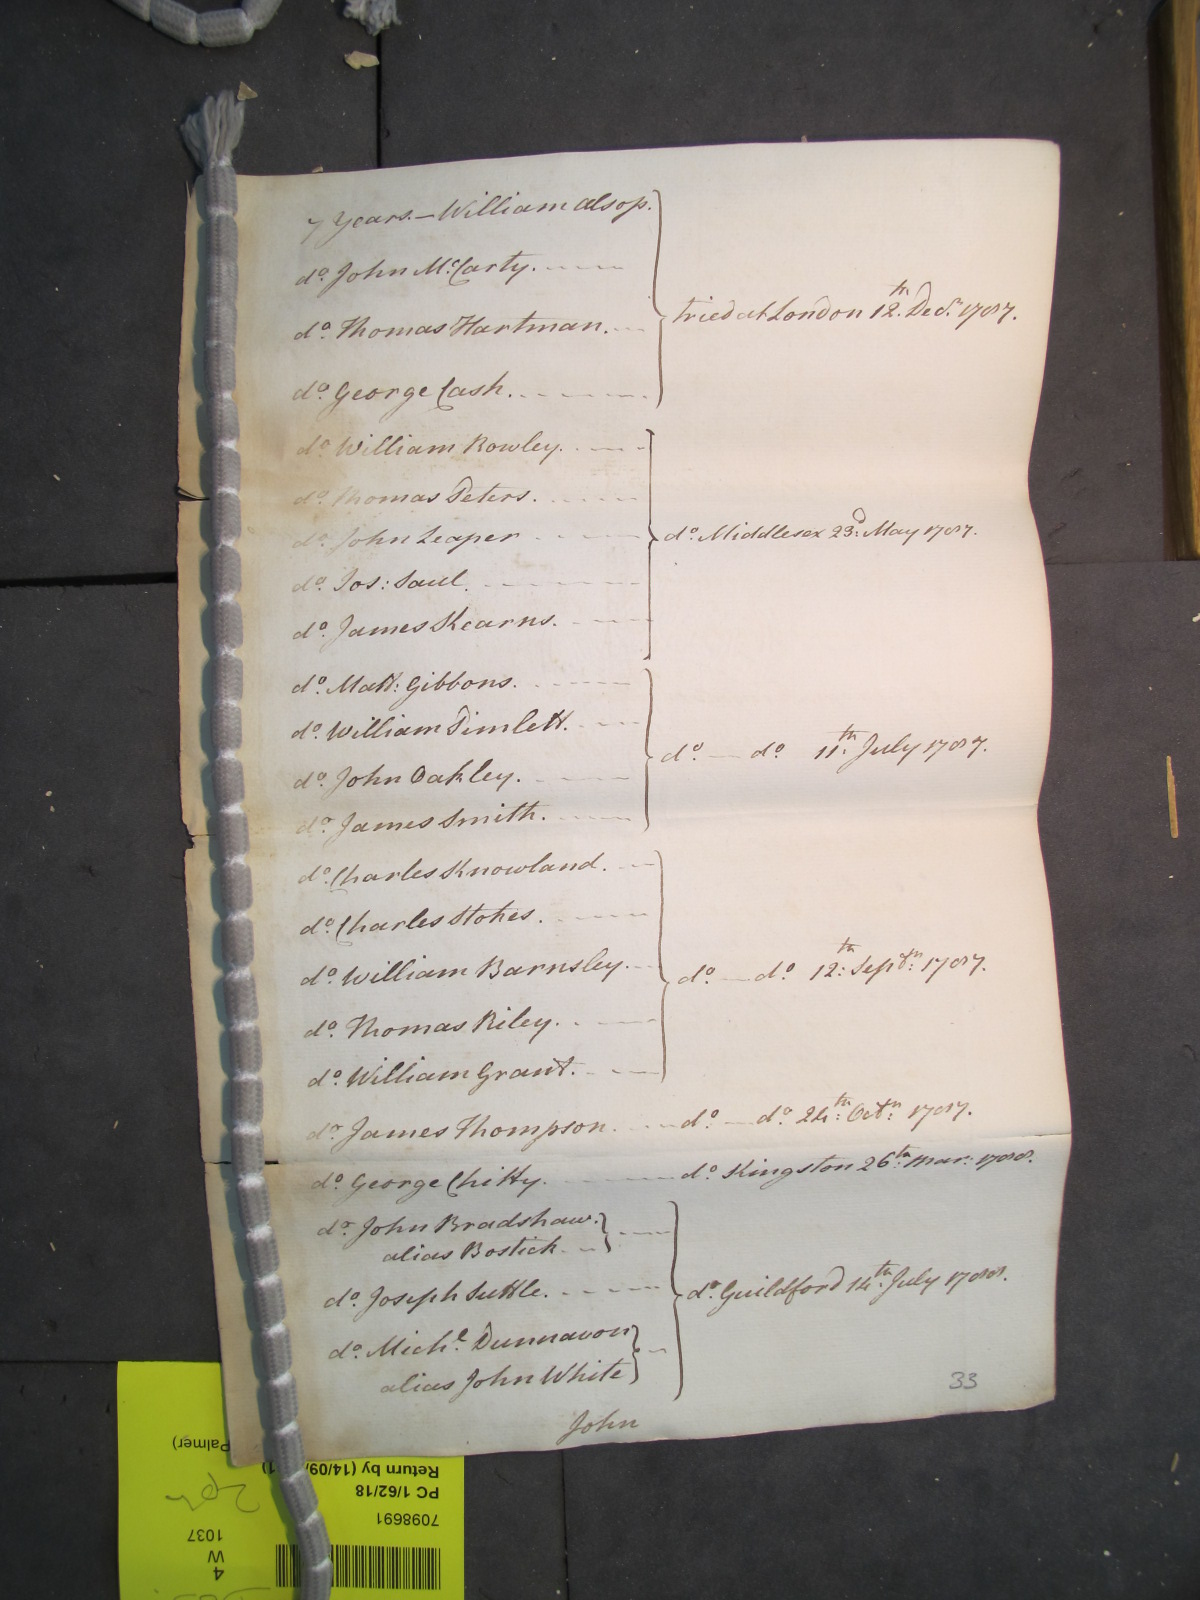 7 Years. — William Alsop.
do. John McCarty.
do. Thomas Hartman.
tried at London 12th. Decr. 1787.
do. George Cash.
do. William Rowley.
do. Thomas Peters.
do. John Leaper
do. Middlesex 23d. May 1787.
do. Jos: Saul.
do. James Kearns.
do. Matt: Gibbons.
do. William Pimlett.
do. — do. 11th. July 1787.
do. John Oakley.
do. James Smith.
do. Charles Knowland.
do. Charles Stokes.
do. William Barnsley.
do. — do. 12th: Septr: 1787.
do. Thomas Riley.
do. William Grant.
do. James Thompson. do. — do. 24th: Octr: 1787.
do. George Chitty. do. Kingston 26th: Mar: 1788.
do. John Bradshaw.
alias Bostick.
do. Joseph Suttle.
do. Guildford 14th. July 1788.
do. Michl. Dunnavon
alias John White
33
John
Palmer)
Return by (14/09/
PC 1/62/18
7098691
1037
W
4